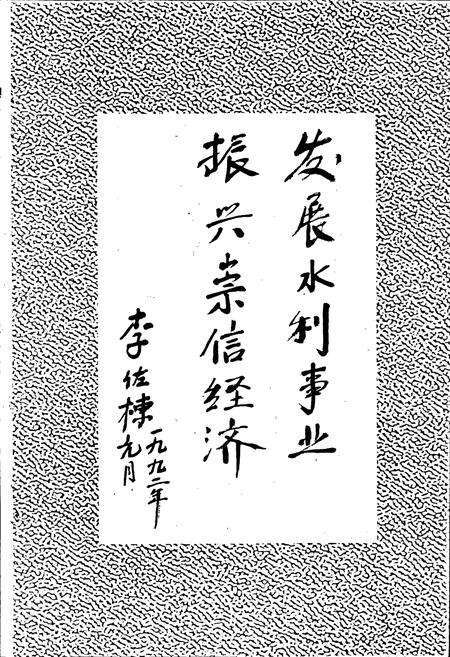 发展水利事业
振兴崇信经济
李佐栋
一九九二年
元月